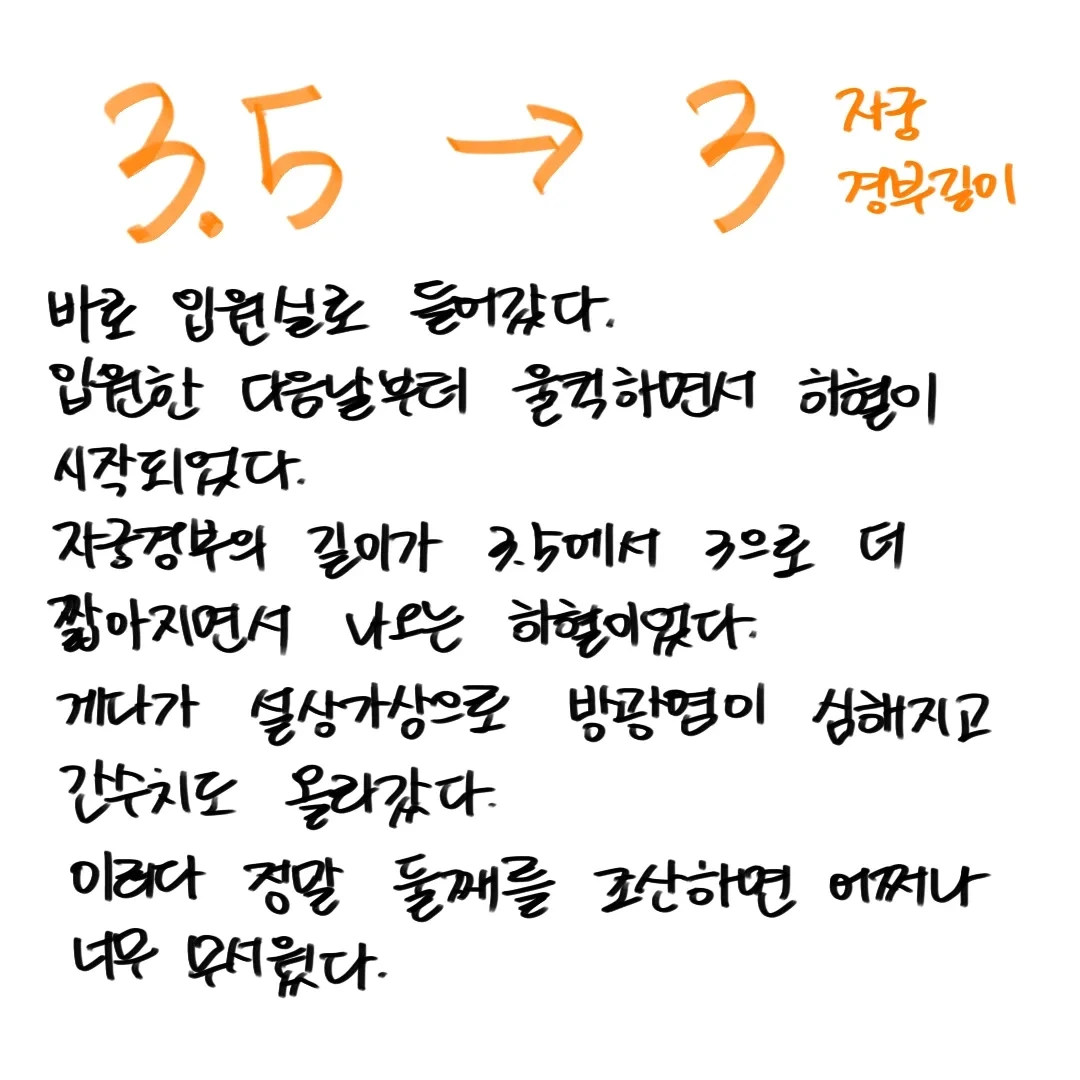 3.5 → 3 자궁
경부길이
바로 입원실로 들어갔다.
입원한 다음날부터 울컥하면서 하혈이
시작되었다.
자궁경부의 길이가 3.5에서 3으로 더
짧아지면서 나오는 하혈이었다.
게다가 설상가상으로 방광염이 심해지고
간수치도 올라갔다.
이러다 정말 둘째를 조산하면 어쩌나
너무 무서웠다.